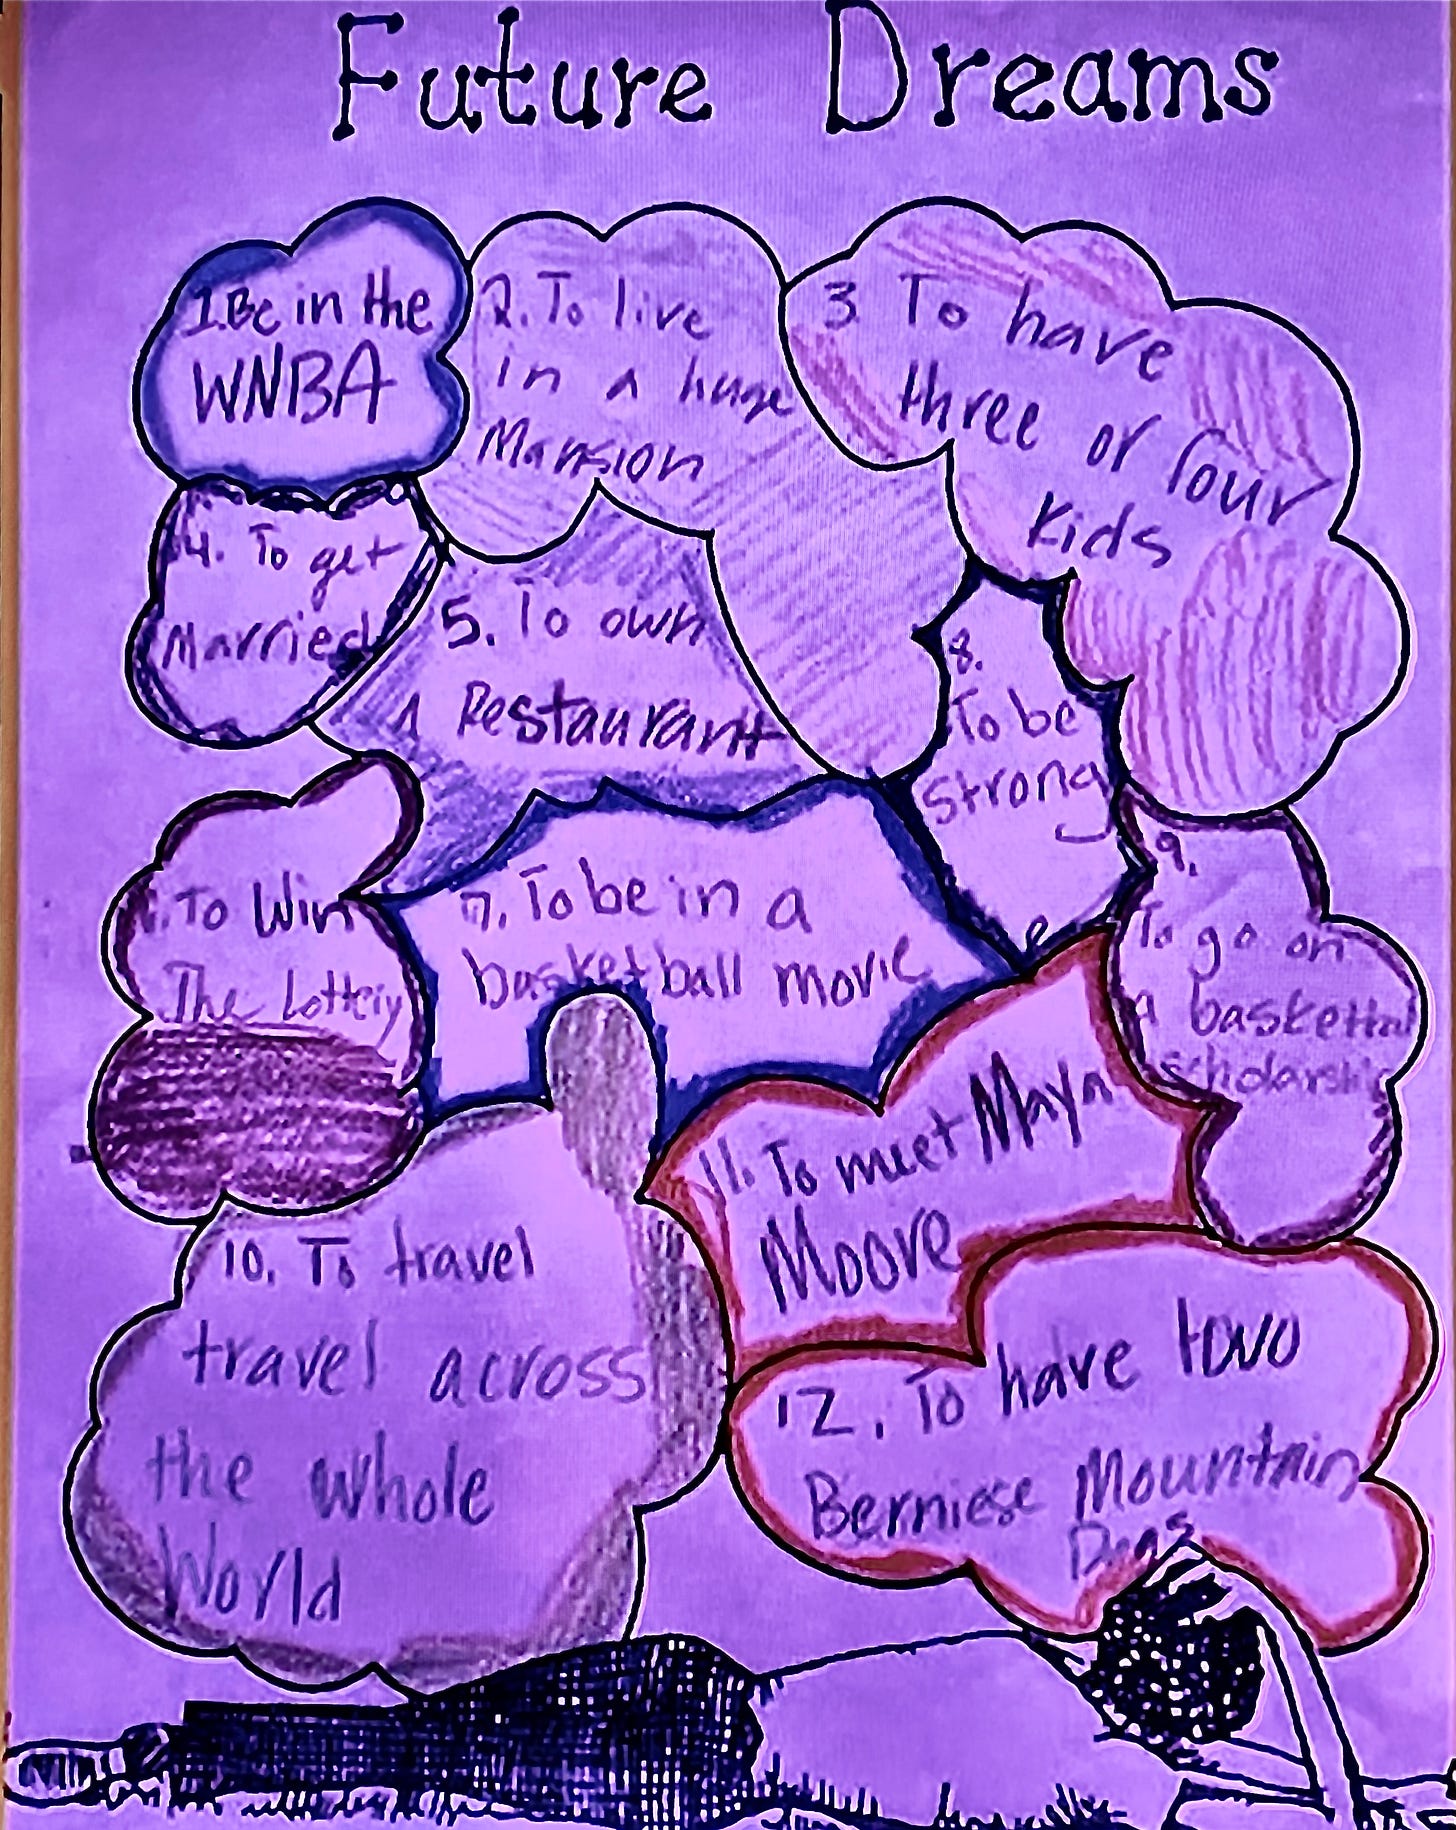 Future Dreams
1. Be in the
WNBA
2. To live
in a huge
Mansion
3. To have
three or four
Kids
4. To get
Married
5. To own
A Restaurant
To Win
The Lottery
7. To be in a
basketball movie
8.
To be
strong
9.
To go on
A basketball
scholarship
10. To travel
travel across
the whole
World
11. To meet Maya
Moore
12. To have two
Berniese Mountain
Dogs